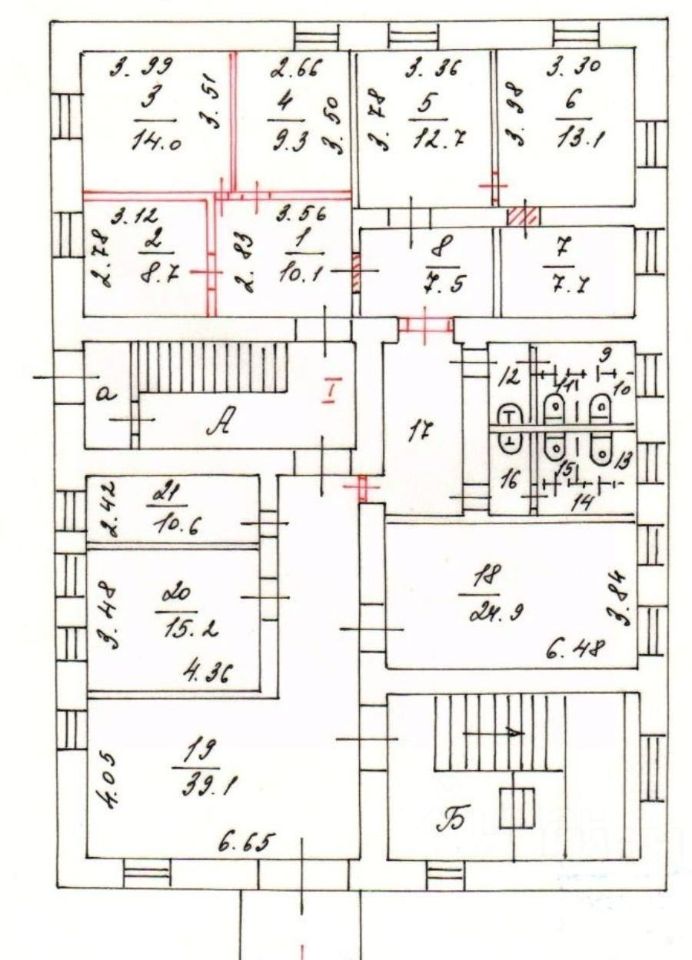 3.99
3
14.0
3.51
2.66
4
9.3
3.50
3.36
5
12.7
3.78
3.30
6
13.1
3.98
3.12
2
8.7
2.78
3.56
1
10.1
2.83
8
7.5
7
7.7
а
А
I
17
12
11
9
10
16
15
13
14
21
10.6
2.42
20
15.2
3.48
4.36
18
24.9
3.84
6.48
19
39.1
4.05
6.65
Б